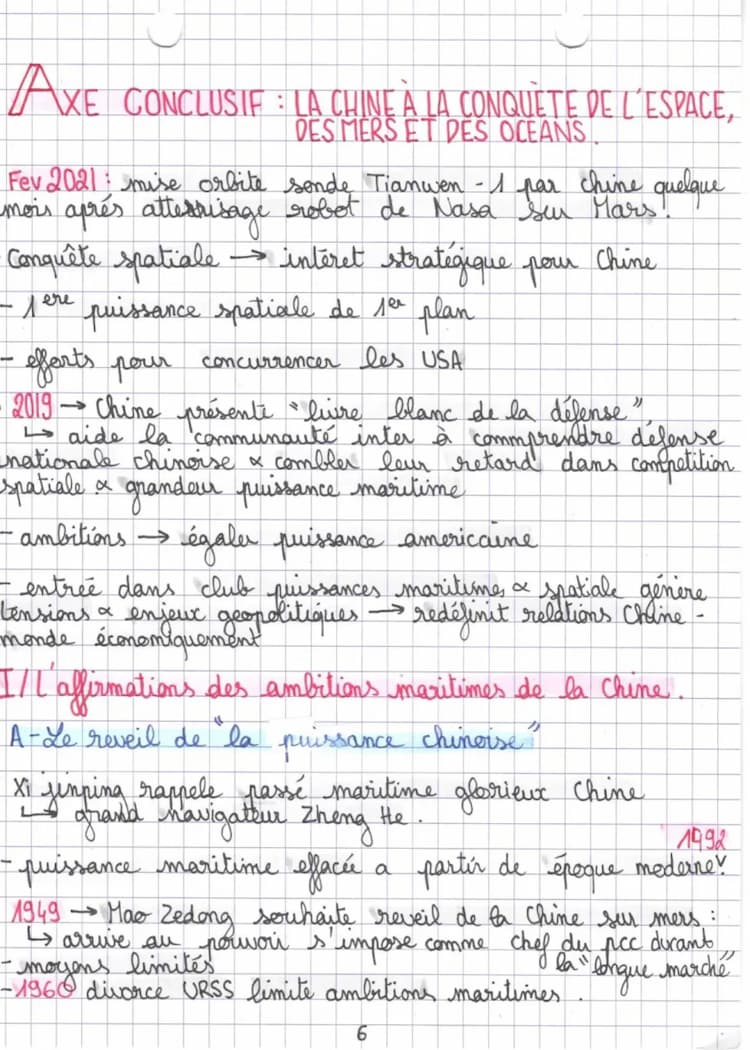 AXE CONCLUSIF : LA CHINE À LA CONQUÈTE DE L'ESPACE,
DES MERS ET DES OCEANS.
Fev 2021 : mise orbite sonde Tianwen - 1 par chine quelque
mois aprés atterrisage robot de Nasa sur Mars.
Conquête spatiale → intéret stratégique pour Chine
- 1ère puissance spatiale de 1er plan
- efforts pour concurrencer les USA
2019 → Chine présente "livre blanc de la défense"
↳ aide la communauté inter à commprendre défense
nationale chinoise & combler leur retard dans competition
spatiale & grandeur puissance maritime
- ambitions → égaler puissance americaine
- entreé dans club puissances maritimes & spatiale génère
tensions & enjeux geopolitiques → redéfinit relations Chine -
monde économiquement
I / L'affirmations des ambitions maritimes de la Chine.
A - Le reveil de "la puissance chinoise"
Xi jinping rappele passé maritime glorieux Chine
↳ grand navigatteur Zheng He.
1992
- puissance maritime effacée a partir de époque moderne
1949 → Mao Zedong souhaite reveil de la Chine sur mers :
↳ arrive au pouvoir s'impose comme chef du pcc durant
la "longue marche"
- moyens limités
- 1960 divorce URSS limite ambitions maritimes.
6